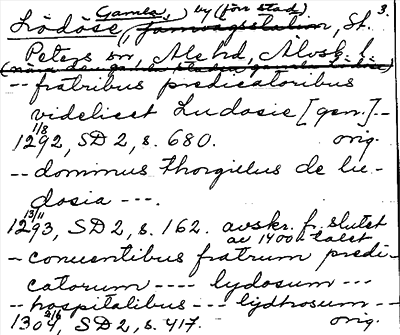 Gamla, by (förr stad) 3.
Lödöse, järnvägsstation, St.
Peters sn, Ale hd, Älvsb. l.
-- fratribus predicatoribus
videlicet Ludosie [gen.] --
1/8
1292, SD 2, s. 680. orig.
-- dominus Thorgillus de lu-
dosia ---.
13/11
1293, SD 2, s. 162. avskr. fr. slutet
av 1400-talet
- conuentibus fratrum predi-
catorum ---- lydosum ---
-- hospitalibus --- lydhosum --
1304, SD 2, s. 417. orig.